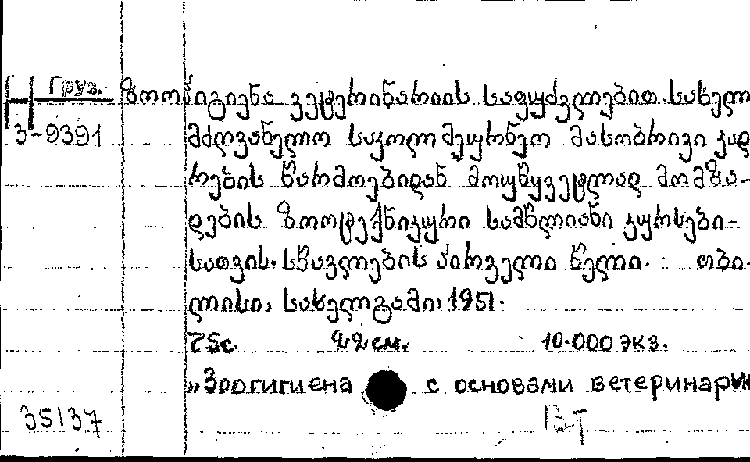 Груз. ზოოჰიგიენა ვეტერინარიის საფუძვლებით. სახელ
3-9391 მძღვანელო საკოლმეურნეო მასობრივი კად
რების წარმოებიდან მოუწყვეტლად მომზა-
დების ზოოტექნიკური სამწლიანი კურსები-
სათვის. სწავლების პირველი წელი. თბი-
ლისი, სახელგამი, 1951.
75с. 22 см. 10.000 экз.
„Зоогигиена с основами ветеринари
35137